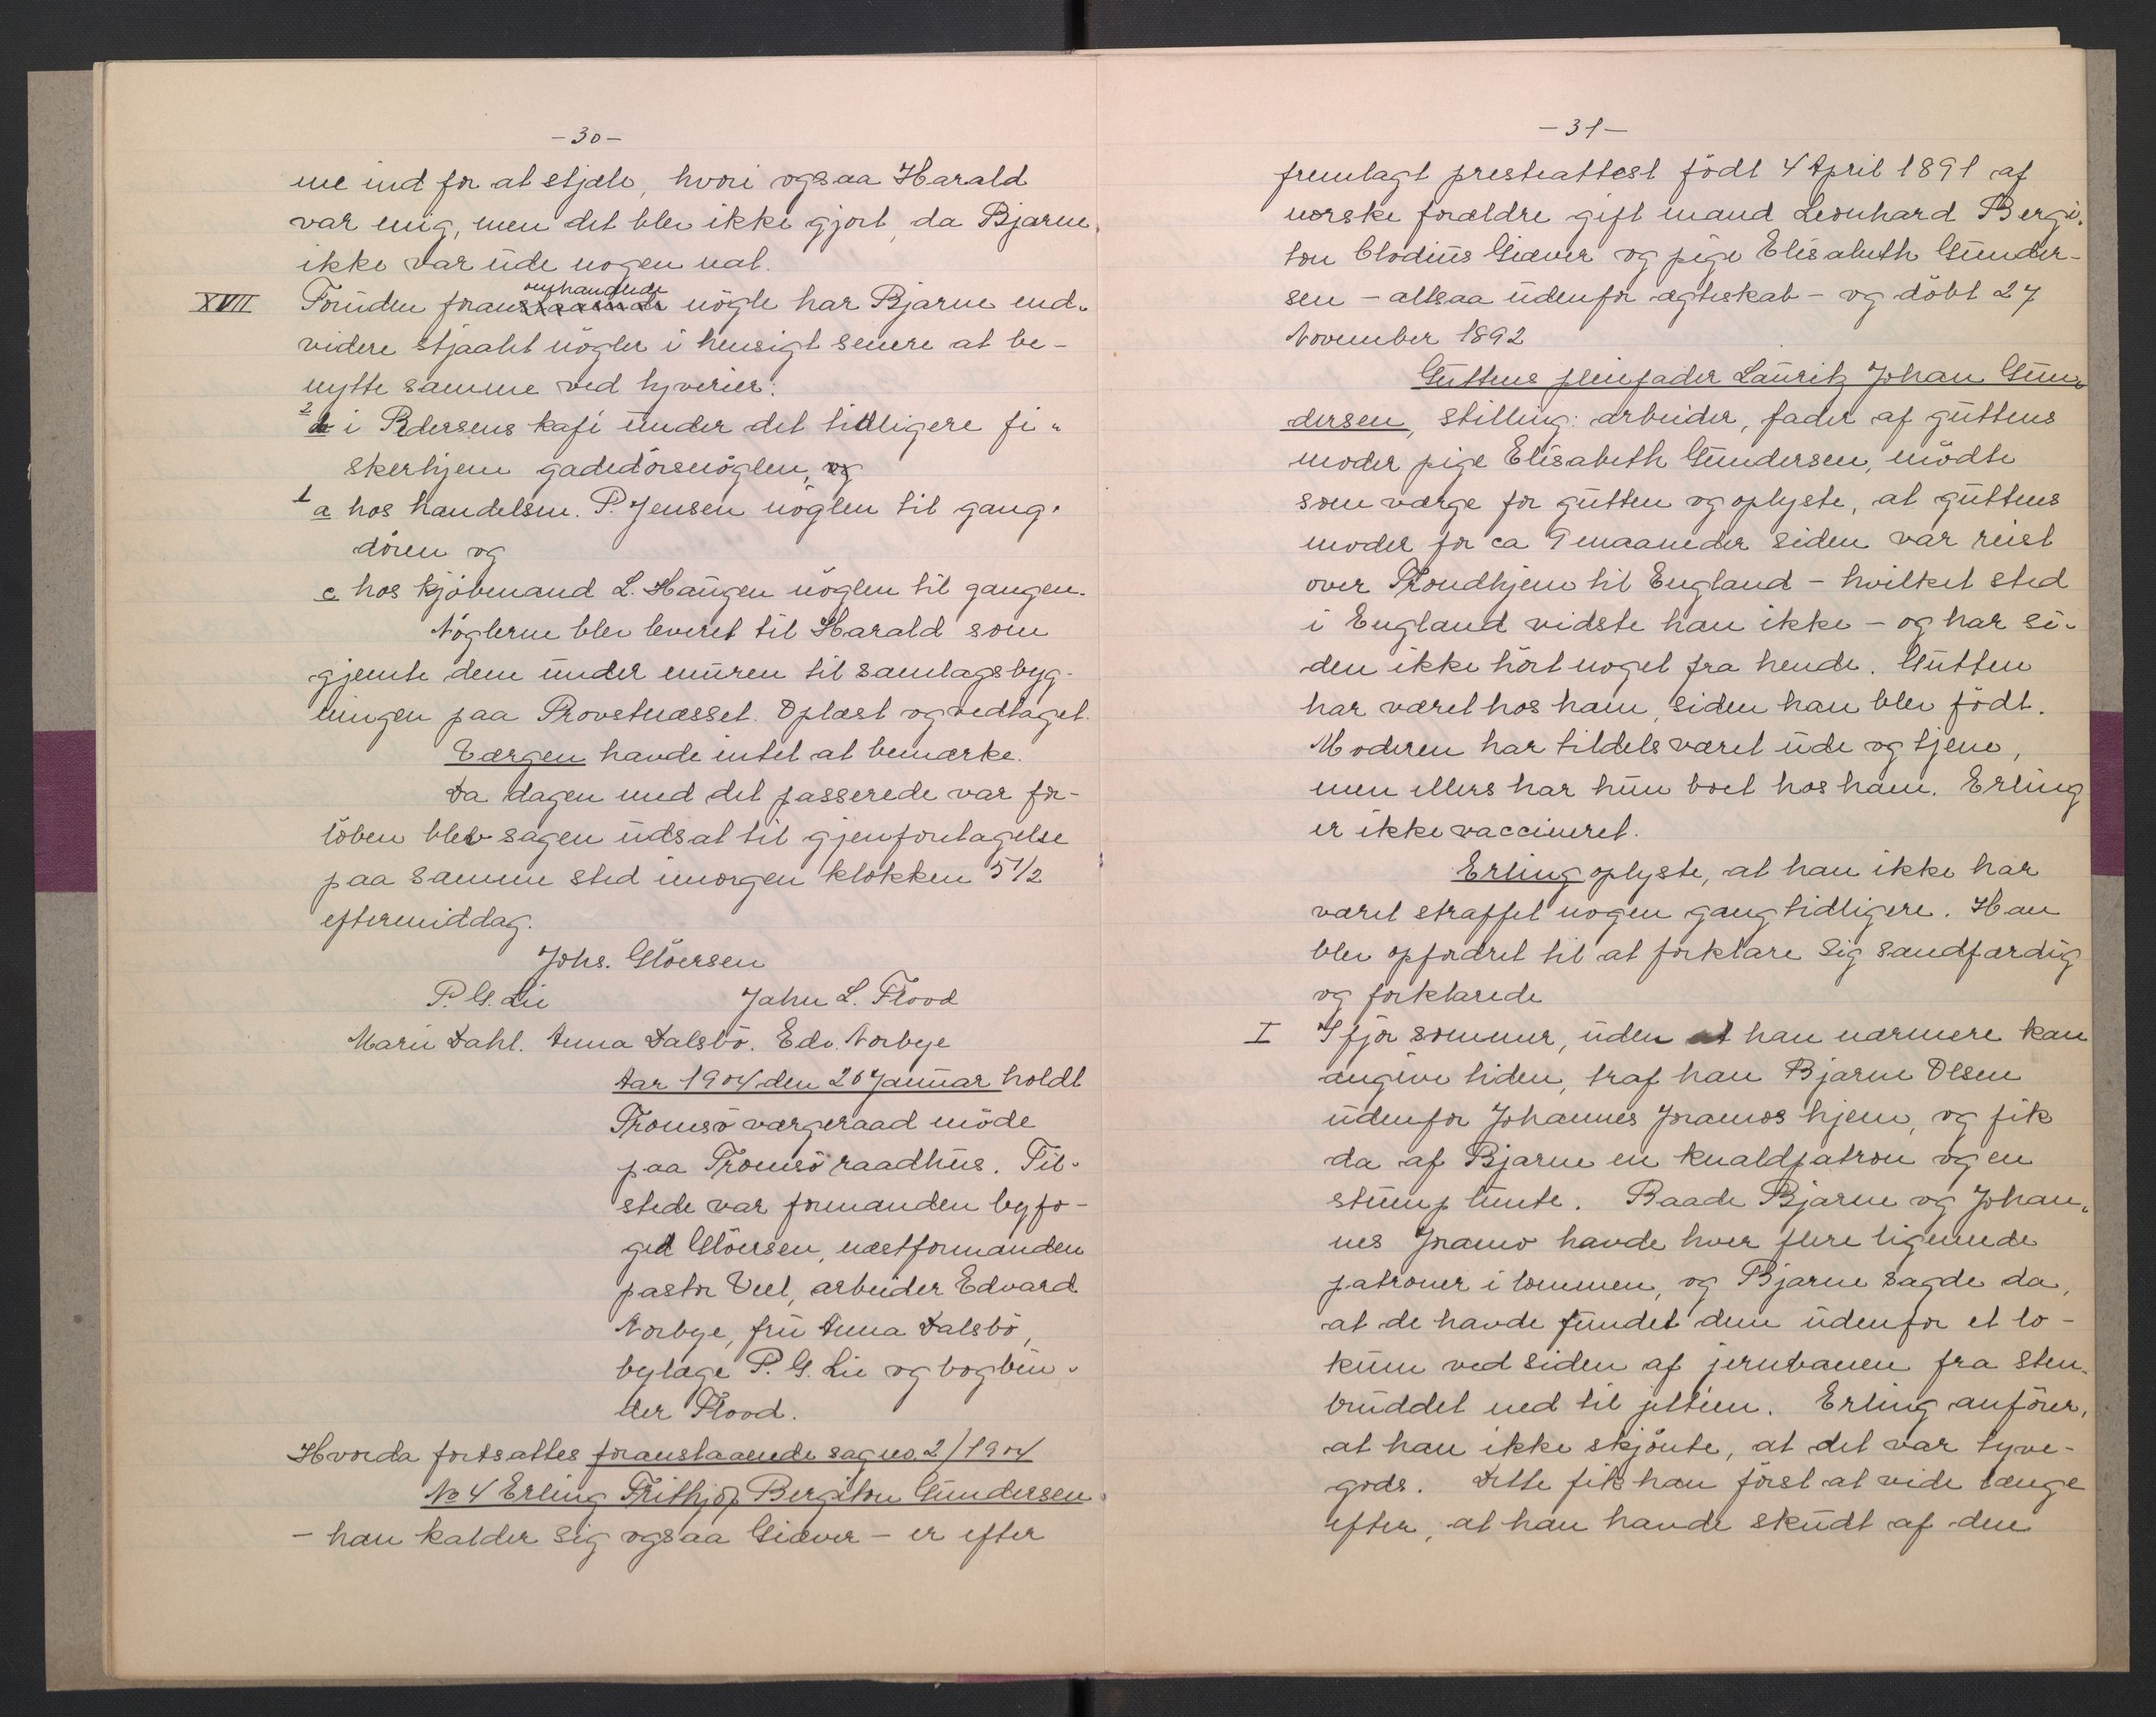 -30-
me ind for at stjæle, hvori ogsaa Harald
var enig, men det blev ikke gjort, da Bjarne
ikke var ude nogen nat.
XVII Foruden foranomhandlede nögle har Bjarne end-
videre stjaalet nögler i hensigt senere at be-
nytte samme ved tyverier:
2 b i Pedersens kafé under det tidligere fi-
skerhjem gadedörsnöglen, og
1 a hos handelsm. P. Jensen nöglen til gang-
dören og
c hos kjöbmand L. Haugen nöglen til gangen.
Nöglerne blev leveret til Harald som
gjemte dem under muren til samlagsbyg-
ningen paa Provstnæsset. Oplæst og vedtaget.
Værgen havde intet at bemærke.
Da dagen med det passerede var for-
löben blev sagen udsat til gjenforetagelse
paa samme sted imorgen klokken 5 1/2
eftermiddag.
Johs. Glöersen
P. G. Lie Jahn L. Flood
Marie Dahl. Anna Dalsbö. Edv. Norbye
Aar 1904 den 26 Januar holdt
Tromsö værgeraad möde
paa Tromsö raadhus. Til-
stede var formanden byfo-
ged Glöersen, næstformanden
pastor Veel, arbeider Edvard
Norbye, fru Anna Dalsbö,
bylæge P. G. Lie og bogbin-
der Flood.
Hvorda fortsattes foranstaaende sag no. 2/1904
No 4 Erling Frithjof Bergiton Gundersen
- han kalder sig ogsaa Giæver - er efter
-31-
fremlagt presteattest födt 4 April 1891 af
norske forældre gift mand Leonhard Bergi-
ton Clodius Giæver og pige Elisabeth Gunder-
sen - altsaa udenfor ægteskab - og döbt 27
November 1892
Guttens pleiefader Lauritz Johan Gun-
dersen, stilling: arbeider, fader af guttens
moder pige Elisabeth Gundersen, mödte
som værge for gutten og oplyste, at guttens
moder for ca 9 maaneder siden var reist
over Trondhjem til England - hvilket sted
i England vidste han ikke - og har si-
den ikke hört noget fra hende. Gutten
har været hos ham, siden han blev födt.
Moderen har tildels været ude og tjene,
men ellers har hun boet hos ham. Erling
er ikke vaccineret.
Erling oplyste, at han ikke har
været straffet nogen gang tidligere. Han
blev opfordret til at forklare sig sandfærdig
og forklarede
I Ifjor sommer, uden at han nærmere kan
angive tiden, traf han Bjarne Olsen
udenfor Johannes Joramos hjem, og fik
da af Bjarne en knaldpatron og en
stump lunte. Baade Bjarne og Johan-
nes Joramo havde hver flere lignende
patroner i lommen, og Bjarne sagde da,
at de havde fundet dem udenfor et lo-
kum ved siden af jernbanen fra sten-
bruddet ned til jetéen. Erling anförer,
at han ikke skjönte, at det var tyve-
gods. Dette fik han först at vide længe
efter, at han havde skudt af den